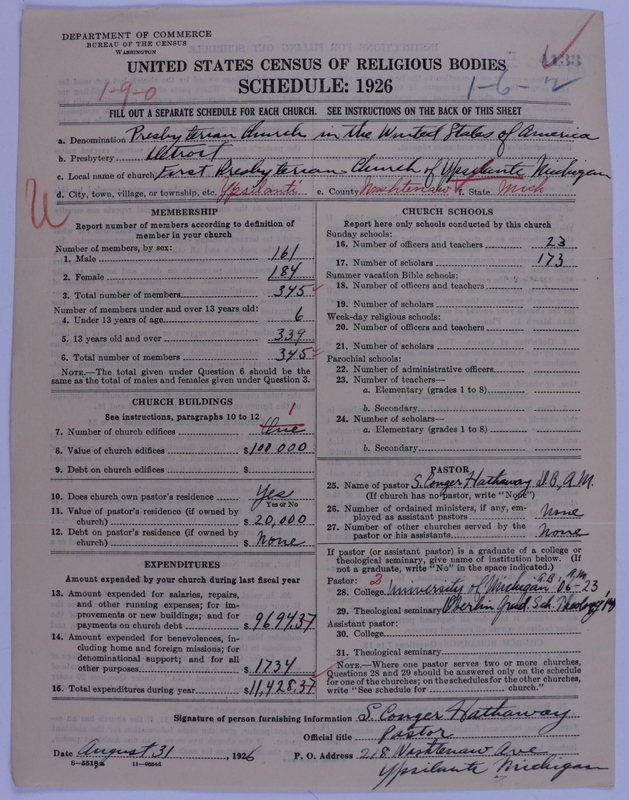 DEPARTMENT OF COMMERCE
BUREAU OF THE CENSUS
WASHINGTON
UNITED STATES CENSUS OF RELIGIOUS BODIES
SCHEDULE: 1926
1-9-0
1-6-2
FILL OUT A SEPARATE SCHEDULE FOR EACH CHURCH. SEE INSTRUCTIONS ON THE BACK OF THIS SHEET
a. Denomination Presbyterian Church in the United States of America
b. Presbytery Detroit
c. Local name of church First Presbyterian Church of Ypsilanti Michigan
d. City, town, village, or township, etc. Ypsilanti e. County Washtenaw f. State Mich
MEMBERSHIP
Report number of members according to definition of
member in your church
Number of members, by sex:
1. Male 161
2. Female 184
3. Total number of members 345
Number of members under and over 13 years old:
4. Under 13 years of age 6
5. 13 years old and over 339
6. Total number of members 345
NOTE.—The total given under Question 6 should be the
same as the total of males and females given under Question 3.
CHURCH BUILDINGS
See instructions, paragraphs 10 to 12
7. Number of church edifices One 1
8. Value of church edifices $100 000
9. Debt on church edifices $
10. Does church own pastor's residence Yes
Yes or No
11. Value of pastor's residence (if owned by
church) $ 20,000
12. Debt on pastor's residence (if owned by
church) $ None
EXPENDITURES
Amount expended by your church during last fiscal year
13. Amount expended for salaries, repairs,
and other running expenses; for im-
provements or new buildings; and for
payments on church debt $ 9694.37
14. Amount expended for benevolences, in-
cluding home and foreign missions; for
denominational support; and for all
other purposes $ 1734
15. Total expenditures during year $ 11,428.37
CHURCH SCHOOLS
Report here only schools conducted by this church
Sunday schools:
16. Number of officers and teachers 23
17. Number of scholars 173
Summer vacation Bible schools:
18. Number of officers and teachers
19. Number of scholars
Week-day religious schools:
20. Number of officers and teachers
21. Number of scholars
Parochial schools:
22. Number of administrative officers
23. Number of teachers—
a. Elementary (grades 1 to 8)
b. Secondary
24. Number of scholars—
a. Elementary (grades 1 to 8)
b. Secondary
PASTOR
25. Name of pastor S. Conger Hathaway
(If church has no pastor, write "None")
26. Number of ordained ministers, if any, em-
ployed as assistant pastors None
27. Number of other churches served by the
pastor or his assistants None
If pastor (or assistant pastor) is a graduate of a college or
theological seminary, give name of institution below. (If
not a graduate, write "No" in the space indicated.)
Pastor: 3
28. College University of Michigan A.B. 06-23
29. Theological seminary Oberlin Grad. Sch. Theology
Assistant pastor:
30. College
31. Theological seminary
NOTE.—Where one pastor serves two or more churches,
Questions 28 and 29 should be answered only on the schedule
for one of the churches; on the schedules for the other churches,
write "See schedule for church."
Signature of person furnishing information S. Conger Hathaway
Official title Pastor
Date August 31, 1926 P. O. Address 218 Washtenaw Ave
Ypsilanti Michigan
8-5518a 11-9086d